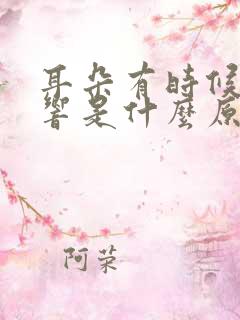 耳朵有時候
響是什麼原
阿荣